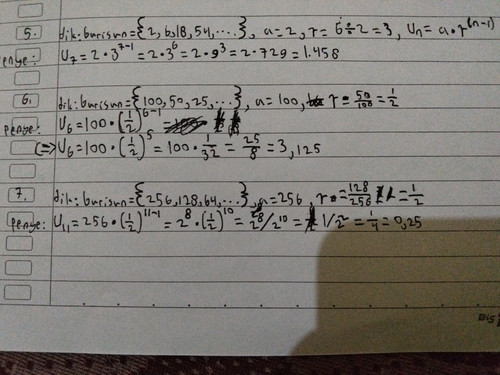 5. dik: barisan = {2, 6, 18, 54, ....}, a = 2, r = 6 ÷ 2 = 3, Un = a • r^(n-1)
penye: U7 = 2 • 3^7-1 = 2 • 3^6 = 2 • 9^3 = 2 • 729 = 1.458
6. dik: barisan = {100, 50, 25, ...}, a = 100, r = 50/100 = 1/2
penye: U6 = 100 • (1/2)^6-1
(=> U6 = 100 • (1/2)^5 = 100 • 1/32 = 25/8 = 3,125
7. dik: barisan = {256, 128, 64, ...}, a = 256, r = 128/256 = 1/2
penye: U11 = 256 • (1/2)^11-1 = 2^8 • (1/2)^10 = 2^8/2^10 = 1/2^2 = 1/4 = 0,25